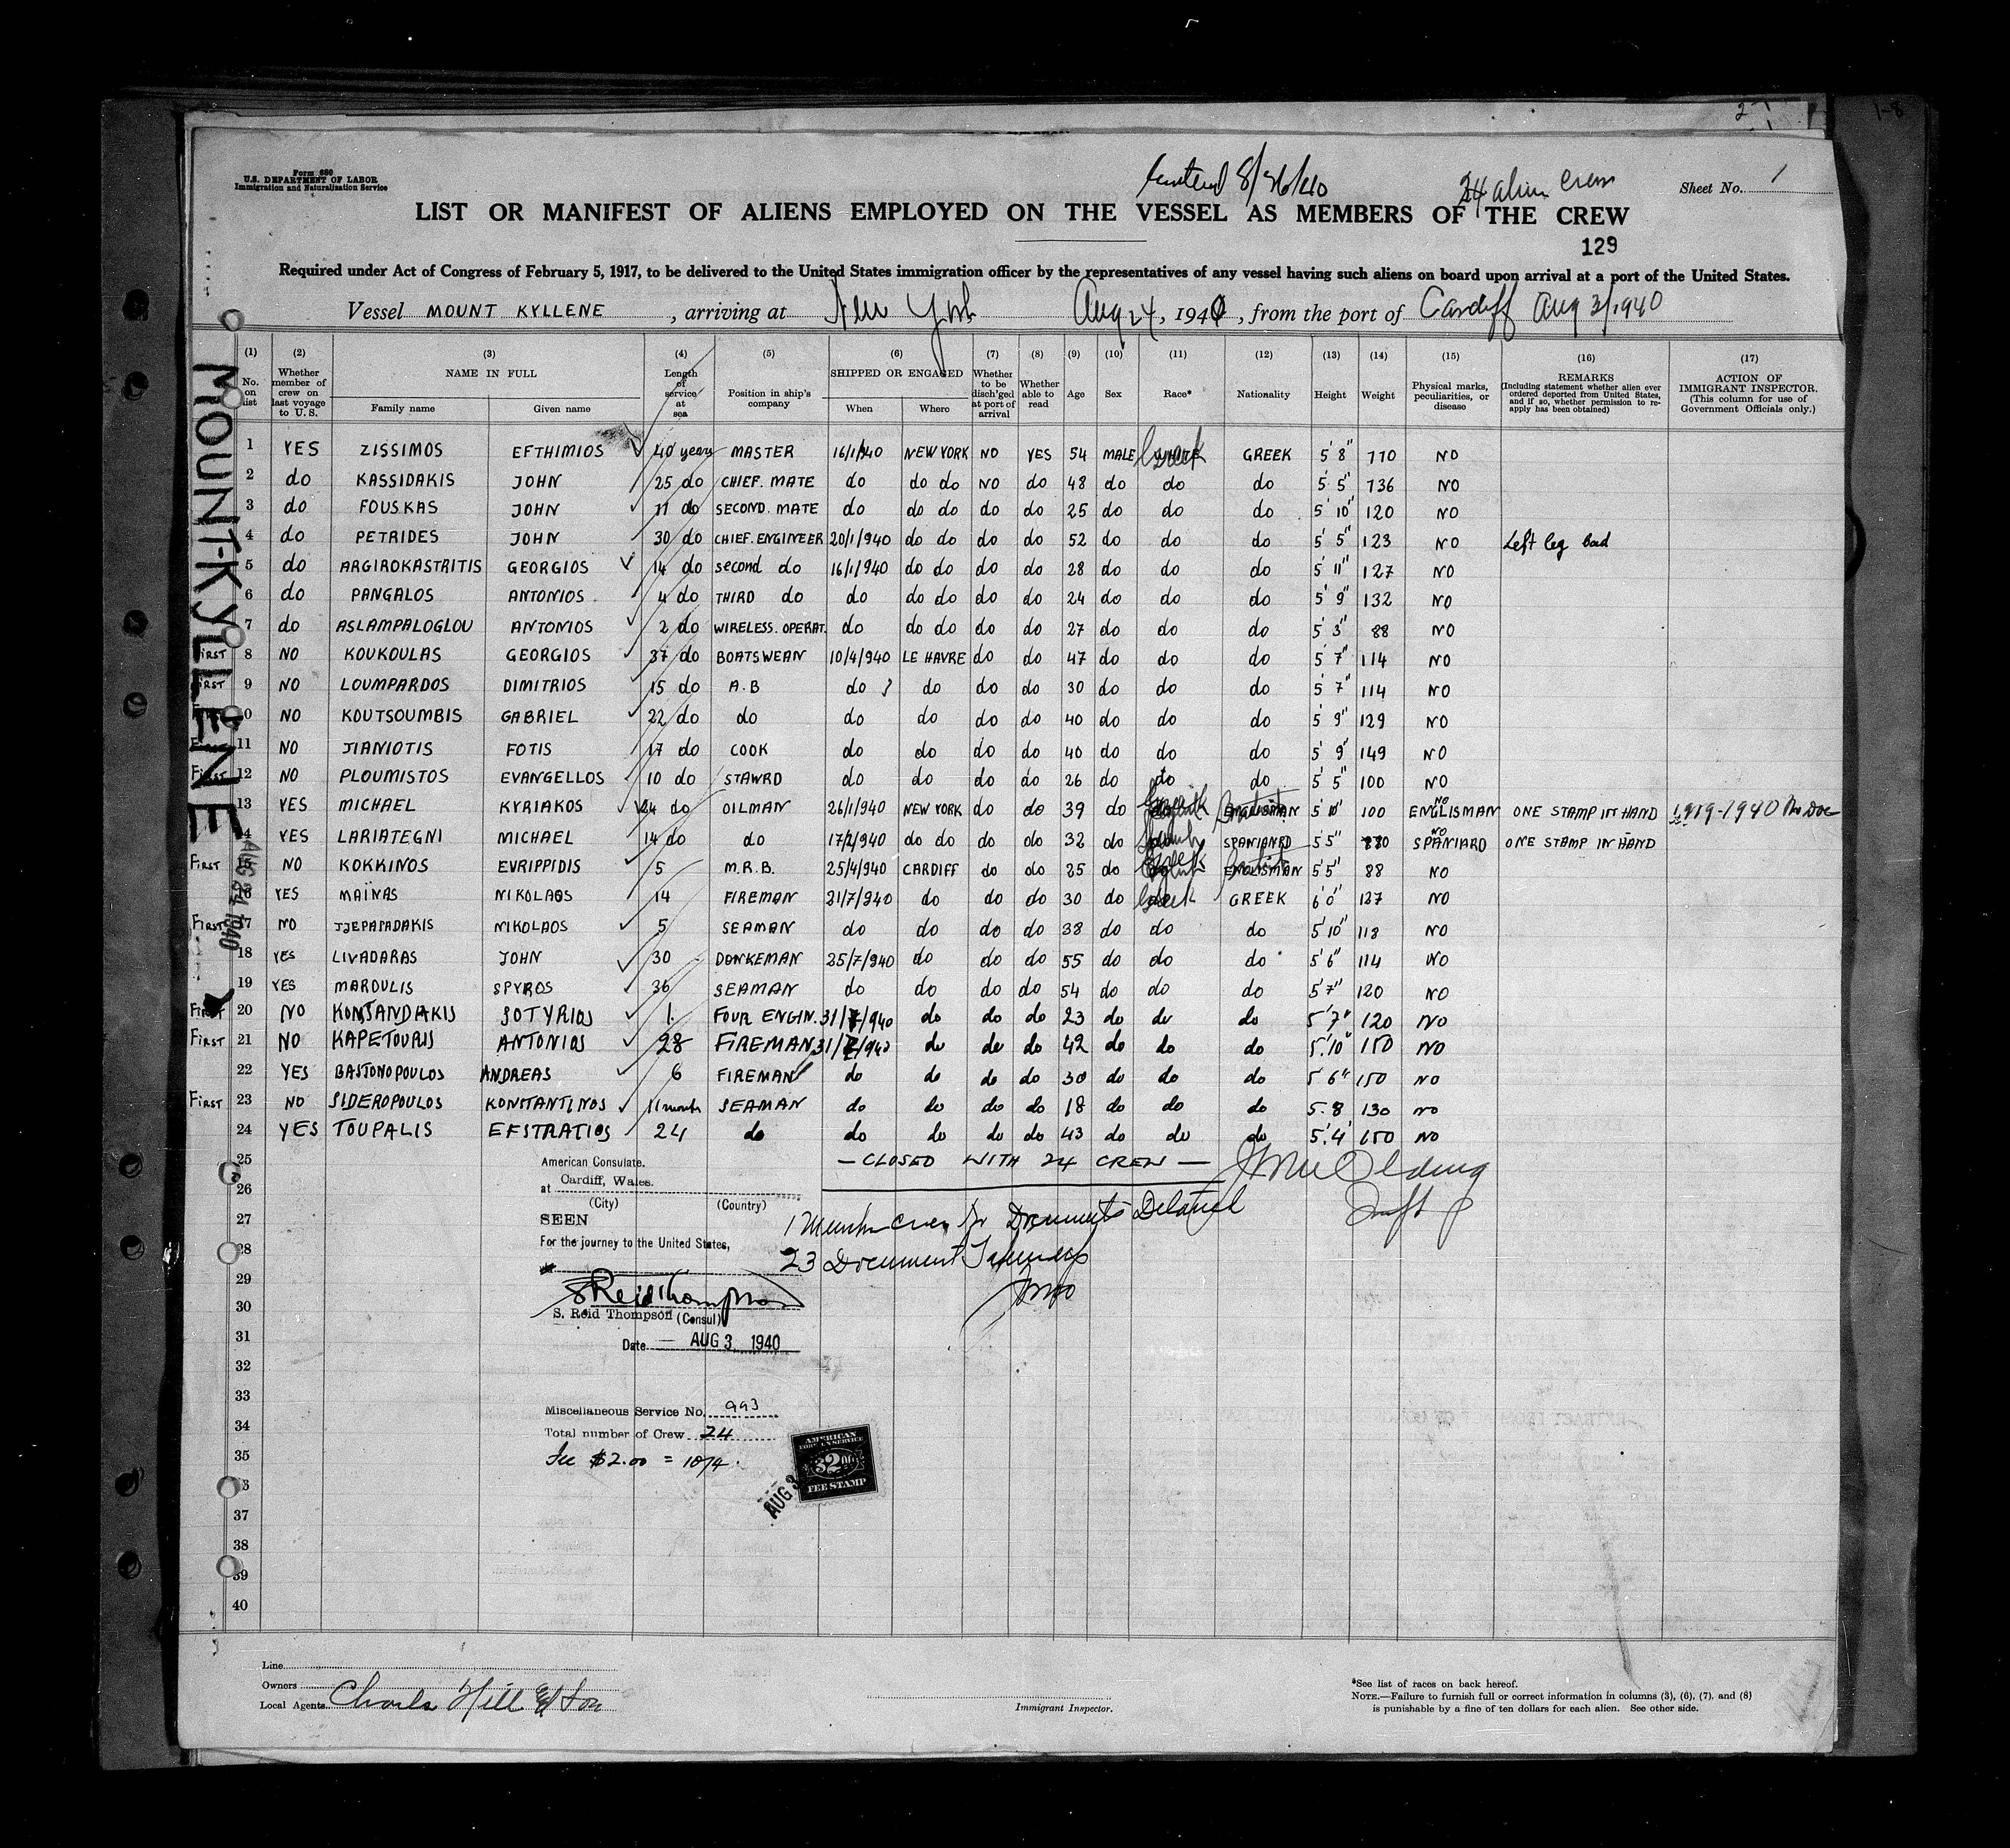 Form 680
U.S. DEPARTMENT OF LABOR
Immigration and Naturalization Service
8/26/40
24 alien crew
Sheet No. 1
LIST OR MANIFEST OF ALIENS EMPLOYED ON THE VESSEL AS MEMBERS OF THE CREW
129
Required under Act of Congress of February 5, 1917, to be delivered to the United States immigration officer by the representatives of any vessel having such aliens on board upon arrival at a port of the United States.
Vessel MOUNT KYLLENE, arriving at New York Aug 24, 1940, from the port of Cardiff Aug 3/1940
MOUNT-KYLLENE
AUG 24 1940
(1) (2) (3) (4) (5) (6) (7) (8) (9) (10) (11) (12) (13) (14) (15) (16) (17)
No. on list
Whether member of crew on last voyage to U.S.
NAME IN FULL
Family name
Given name
Length of service at sea
Position in ship's company
SHIPPED OR ENGAGED
When
Where
Whether to be disch'ged at port of arrival
Whether able to read
Age
Sex
Race*
Nationality
Height
Weight
Physical marks, peculiarities, or disease
REMARKS
(Including statement whether alien ever ordered deported from United States, and if so, whether permission to reapply has been obtained)
ACTION OF IMMIGRANT INSPECTOR.
(This column for use of Government Officials only.)
1 YES ZISSIMOS EFTHIMIOS 40 years MASTER 16/1/940 NEW YORK NO YES 54 MALE Greek GREEK 5'8" 110 NO
2 do KASSIDAKIS JOHN 25 do CHIEF. MATE do do do NO do 48 do do do 5'5" 136 NO
3 do FOUSKAS JOHN 11 do SECOND. MATE do do do do do 25 do do do 5'10" 120 NO
4 do PETRIDES JOHN 30 do CHIEF. ENGINEER 20/1/940 do do do do 52 do do do 5'5" 123 NO Left leg bad
5 do ARGIROKASTRITIS GEORGIOS 14 do second do 16/1/940 do do do do 28 do do do 5'11" 127 NO
6 do PANGALOS ANTONIOS 4 do THIRD do do do do do do 24 do do do 5'9" 132 NO
7 do ASLAMPALOGLOU ANTONIOS 2 do WIRELESS. OPERAT. do do do do do 27 do do do 5'3" 88 NO
First 8 NO KOUKOULAS GEORGIOS 37 do BOATSWEAN 10/4/940 LE HAVRE do do 47 do do do 5'7" 114 NO
First 9 NO LOUMPARDOS DIMITRIOS 15 do A.B do do do do 30 do do do 5'7" 114 NO
First 10 NO KOUTSOUMBIS GABRIEL 22 do do do do do do 40 do do do 5'9" 129 NO
First 11 NO JIANIOTIS FOTIS 17 do COOK do do do do 40 do do do 5'9" 149 NO
First 12 NO PLOUMISTOS EVANGELLOS 10 do STAWRD do do do do 26 do do do 5'5" 100 NO
13 YES MICHAEL KYRIAKOS 24 do OILMAN 26/1/940 NEW YORK do do 39 do Greek ENGLISMAN 5'10" 100 NO ENGLISMAN ONE STAMP IN HAND 1919-1940 No Doc
14 YES LARIATEGNI MICHAEL 14 do do 17/2/940 do do do do 32 do SPANIARD 5'5" NO SPANIARD ONE STAMP IN HAND
First 15 NO KOKKINOS EVRIPPIDIS 5 M.R.B. 25/4/940 CARDIFF do do 25 do Greek ENGLISMAN 5'5" 88 NO
16 YES MAÏNAS NIKOLAOS 14 FIREMAN 21/7/940 do do do 30 do Greek GREEK 6'0" 127 NO
First 17 NO JJEPAPADAKIS NIKOLAOS 5 SEAMAN do do do do 38 do do do 5'10" 118 NO
18 YES LIVADARAS JOHN 30 DONKEMAN 25/7/940 do do do 55 do do do 5'6" 114 NO
19 YES MAROULIS SPYROS 36 SEAMAN do do do do 54 do do do 5'7" 120 NO
First 20 NO KONSANDAKIS SOTYRIOS 1. FOUR ENGIN. 31/7/940 do do do 23 do do do 5'7" 120 NO
First 21 NO KAPETOURIS ANTONIOS 28 FIREMAN 31/7/940 do do do 42 do do do 5'.10" 150 NO
22 YES BASTONOPOULOS ANDREAS 6 FIREMAN do do do do 30 do do do 5'6" 150 NO
First 23 NO SIDEROPOULOS KONSTANTINOS 11 month SEAMAN do do do do 18 do do do 5.8 130 NO
24 YES TOUPALIS EFSTRATIOS 24 do do do do do 43 do do do 5'.4' 150 NO
25
— CLOSED WITH 24 CREW —
26
27
28
29
30
31
32
33
34
35
36
37
38
39
40
American Consulate.
at Cardiff, Wales.
(City) (Country)
SEEN
For the journey to the United States,
1 Member crew No Documents Detained
23 Document
S Reid Thompson
S. Reid Thompson (Consul)
Date AUG 3 1940
Miscellaneous Service No. 993
Total number of Crew 24
Fee $2.00 = 10/4.
AMERICAN
FOREIGN SERVICE
$2.00
FEE STAMP
AUG 3
Line
Owners
Local Agents Charles Hill & Son
Immigrant Inspector.
*See list of races on back hereof.
NOTE.—Failure to furnish full or correct information in columns (3), (6), (7), and (8)
is punishable by a fine of ten dollars for each alien. See other side.